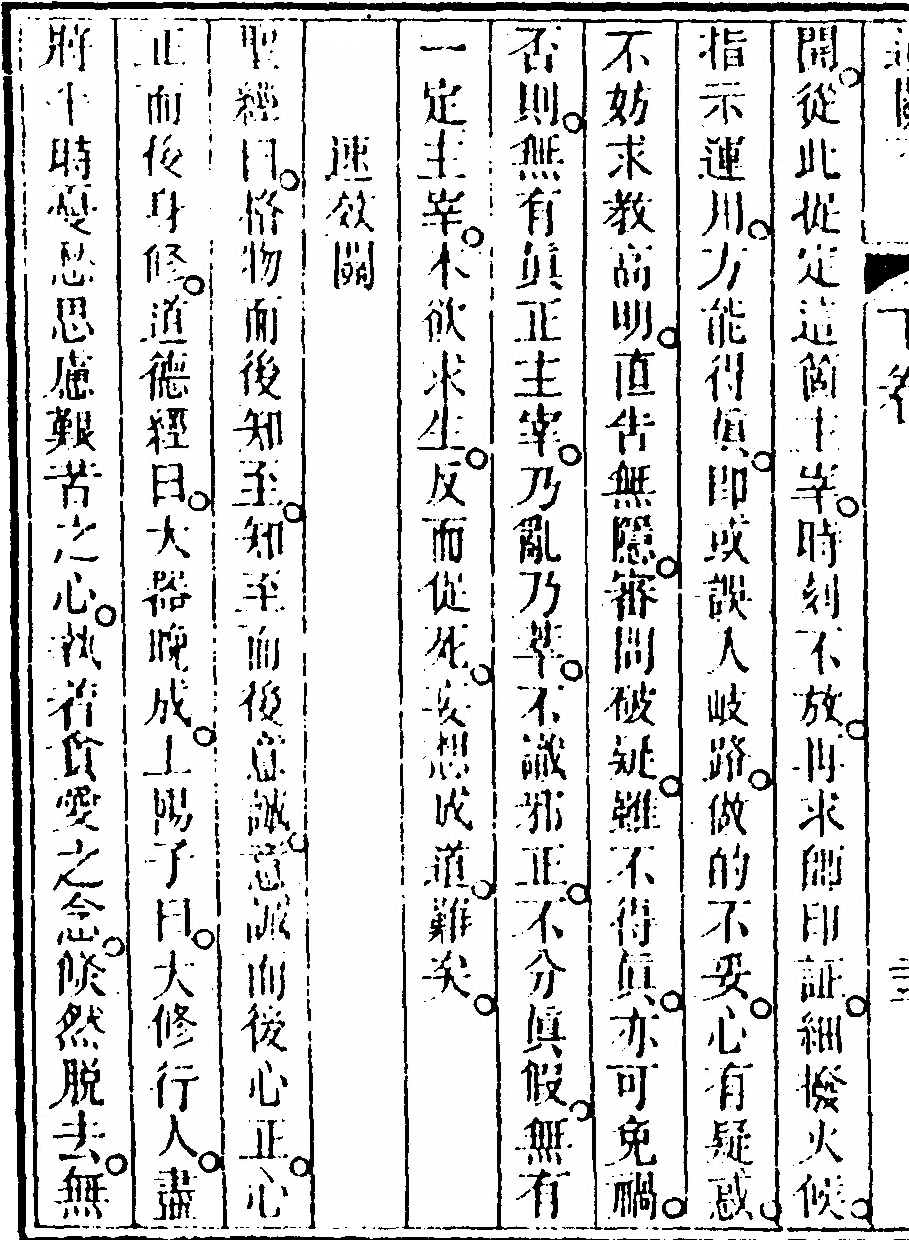 開從此捉定這箇主宰時刻不放再求師印証細撥火候
指示運用方能得眞即或誤入岐路做的不妥心有疑惑
不妨求教高明直告無隱審問破疑雖不得眞亦可免禍
否則無有眞正主宰乃亂乃萃不識邪正不分眞假無有
一定主宰本欲求生反而促死妄想成道難矣
速效關
聖經曰格物而後知至知至而後意誠意誠而後心正心
正而後身修道德經曰大器晚成上陽子曰大修行人盡
將平時憂愁思慮艱苦之心執着貪愛之念倏然脱去無